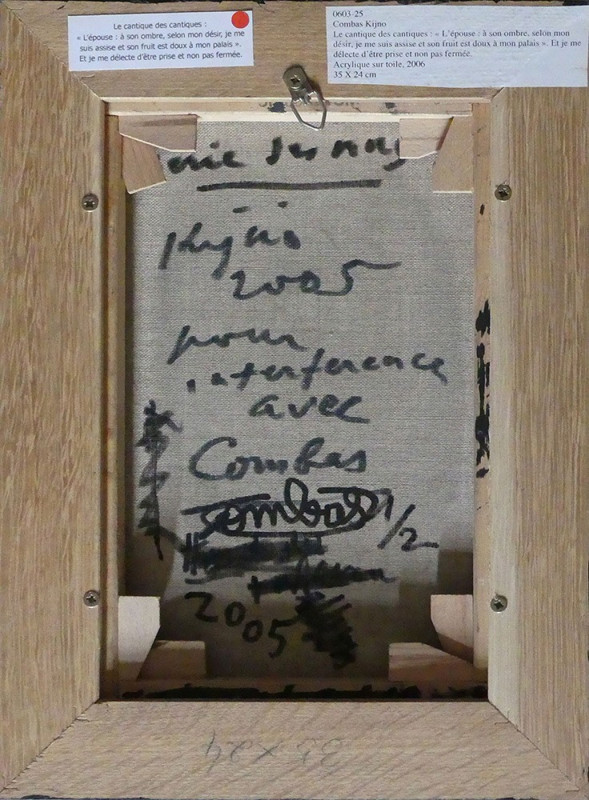 Le cantique des cantiques :
« L'épouse : à son ombre, selon mon désir, je me
suis assise et son fruit est doux à mon palais ».
Et je me délecte d'être prise et non pas fermée.
0603-25
Combas Kijno
Le cantique des cantiques : « L'épouse : à son ombre, selon mon
désir, je me suis assise et son fruit est doux à mon palais ». Et je me
délecte d'être prise et non pas fermée.
Acrylique sur toile, 2006
35 X 24 cm
Kijno
2005
pour
interférence
avec
Combas
Combas 1/2
2005
35 x 24